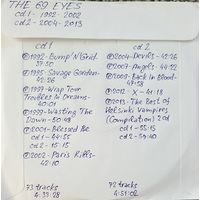 THE 69 EYES
cd 1 - 1992 - 2002
cd 2 - 2004 - 2013
cd 1
① 1992 - Bump'N'Grind -
37:50
② 1995 - Savage Garden -
42:26
③ 1997 - Wrap Your
Troubles In Dreams -
40:01
④ 1999 - Wasting The
Dawn - 50:48
⑤ 2001 - Blessed Be
cd1 - 55:14
cd2 - 
⑥ 2002 - Paris Kills -
42:10
73 tracks
4:33:28
cd 2
① 2004 - Devils - 42:26
② 2007 - Angels - 
③ 2009 - Back In Blood -
47:58
④ 2012 - X - 41:18
⑤ 2013 - The Best of
Helsinki Vampires
(Compilation) 2cd
cd1 - 55:15
cd2 - 
72 tracks
4:51:02